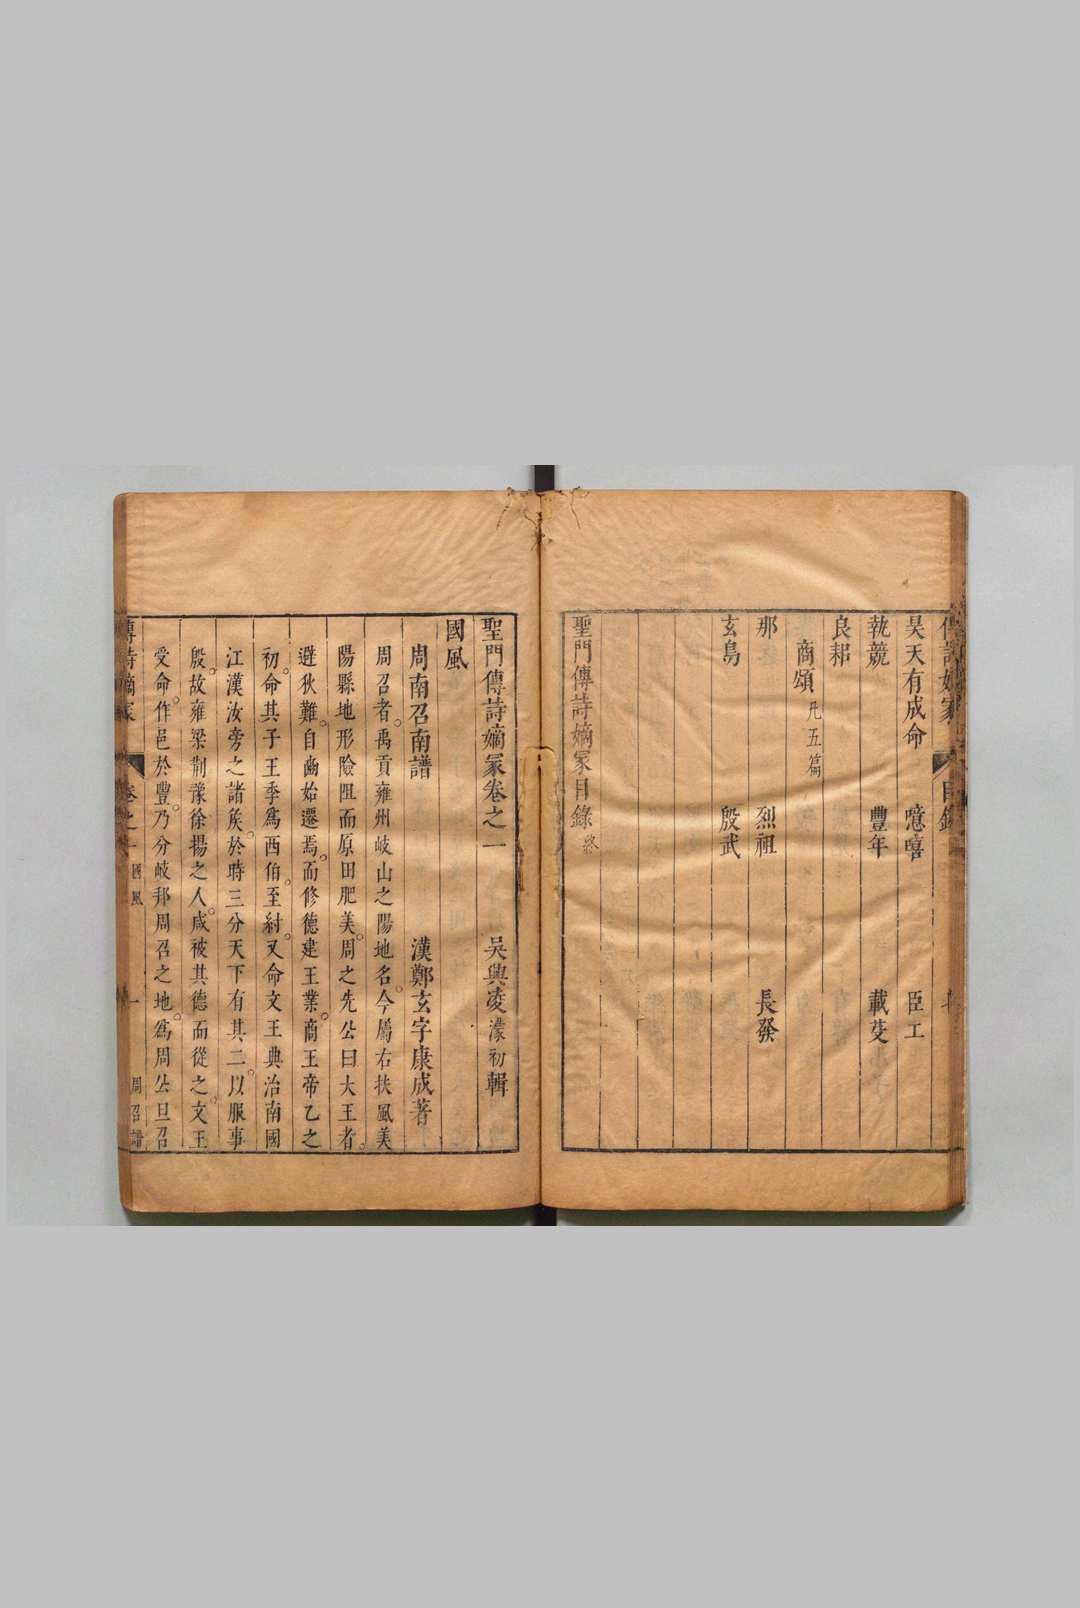 昊天有成命 噫嘻 臣工
執競 豐年 載芟
良耜
商頌 凡五篇
那 烈祖 長發
玄鳥 殷武
聖門傳詩嫡冢目錄 終
聖門傳詩嫡冢卷之一 吳興凌濛初輯
國風
周南召南譜 漢鄭玄字康成著
周召者。禹貢雍州岐山之陽地名。今屬右扶風美
陽縣地形險阻而原田肥美。周之先公曰大王者。
避狄難。自豳始遷焉。而修德建王業。商王帝乙之
初。命其子王季爲西伯。至紂。又命文王典治南國
江漢汝旁之諸矦。於時三分天下有其二。以服事
殷。故雍梁荆豫徐揚之人。咸被其德而從之。文王
受命。作邑於豐。乃分岐邦周召之地。爲周公旦召
傳詩嫡冢 卷之一 國風 一 周召譜